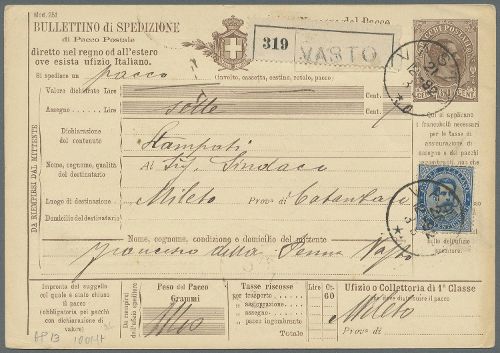 Mod. 251
BULLETTINO di SPEDIZIONE
di Pacco Postale
diretto nel regno od all'estero
ove esista ufizio Italiano.
319
VASTO
Si spediscе un pacco (involto, cassetta, cestino, rotolo, pacco)
Valore dichiarato Lire Cent.
Assegno Lire Cent.
Dichiarazione del contenuto Stampati
Nome, cognome, qualità del destinatario Al Sig. Sindaco
Luogo di destinazione Mileto Prov.a di Catanzaro
Domicilio del destinatario
Nome, cognome, condizione o domicilio del mittente
Francesco della Penna Vasto
DA RIEMPIRSI DAL MITTENTE
Qui si applicano
i francobolli necessari
per le tasse
di assicurazione,
di assegno e dei pacchi
Impronta del suggello
col quale è stato chiuso
il pacco
(obbligatoria pei pacchi
con dichiarazione di
valore)
Da riempirsi
dall'ufizio speditore
Peso del Pacco
Grammi
Tasse riscosse
per trasporto
» assicurazione
» assegno
» pacco ingombrante
Totale
Lire Ct.
60
Ufizio o Collettoria di 1ª Classe
Mileto
Prov.a di